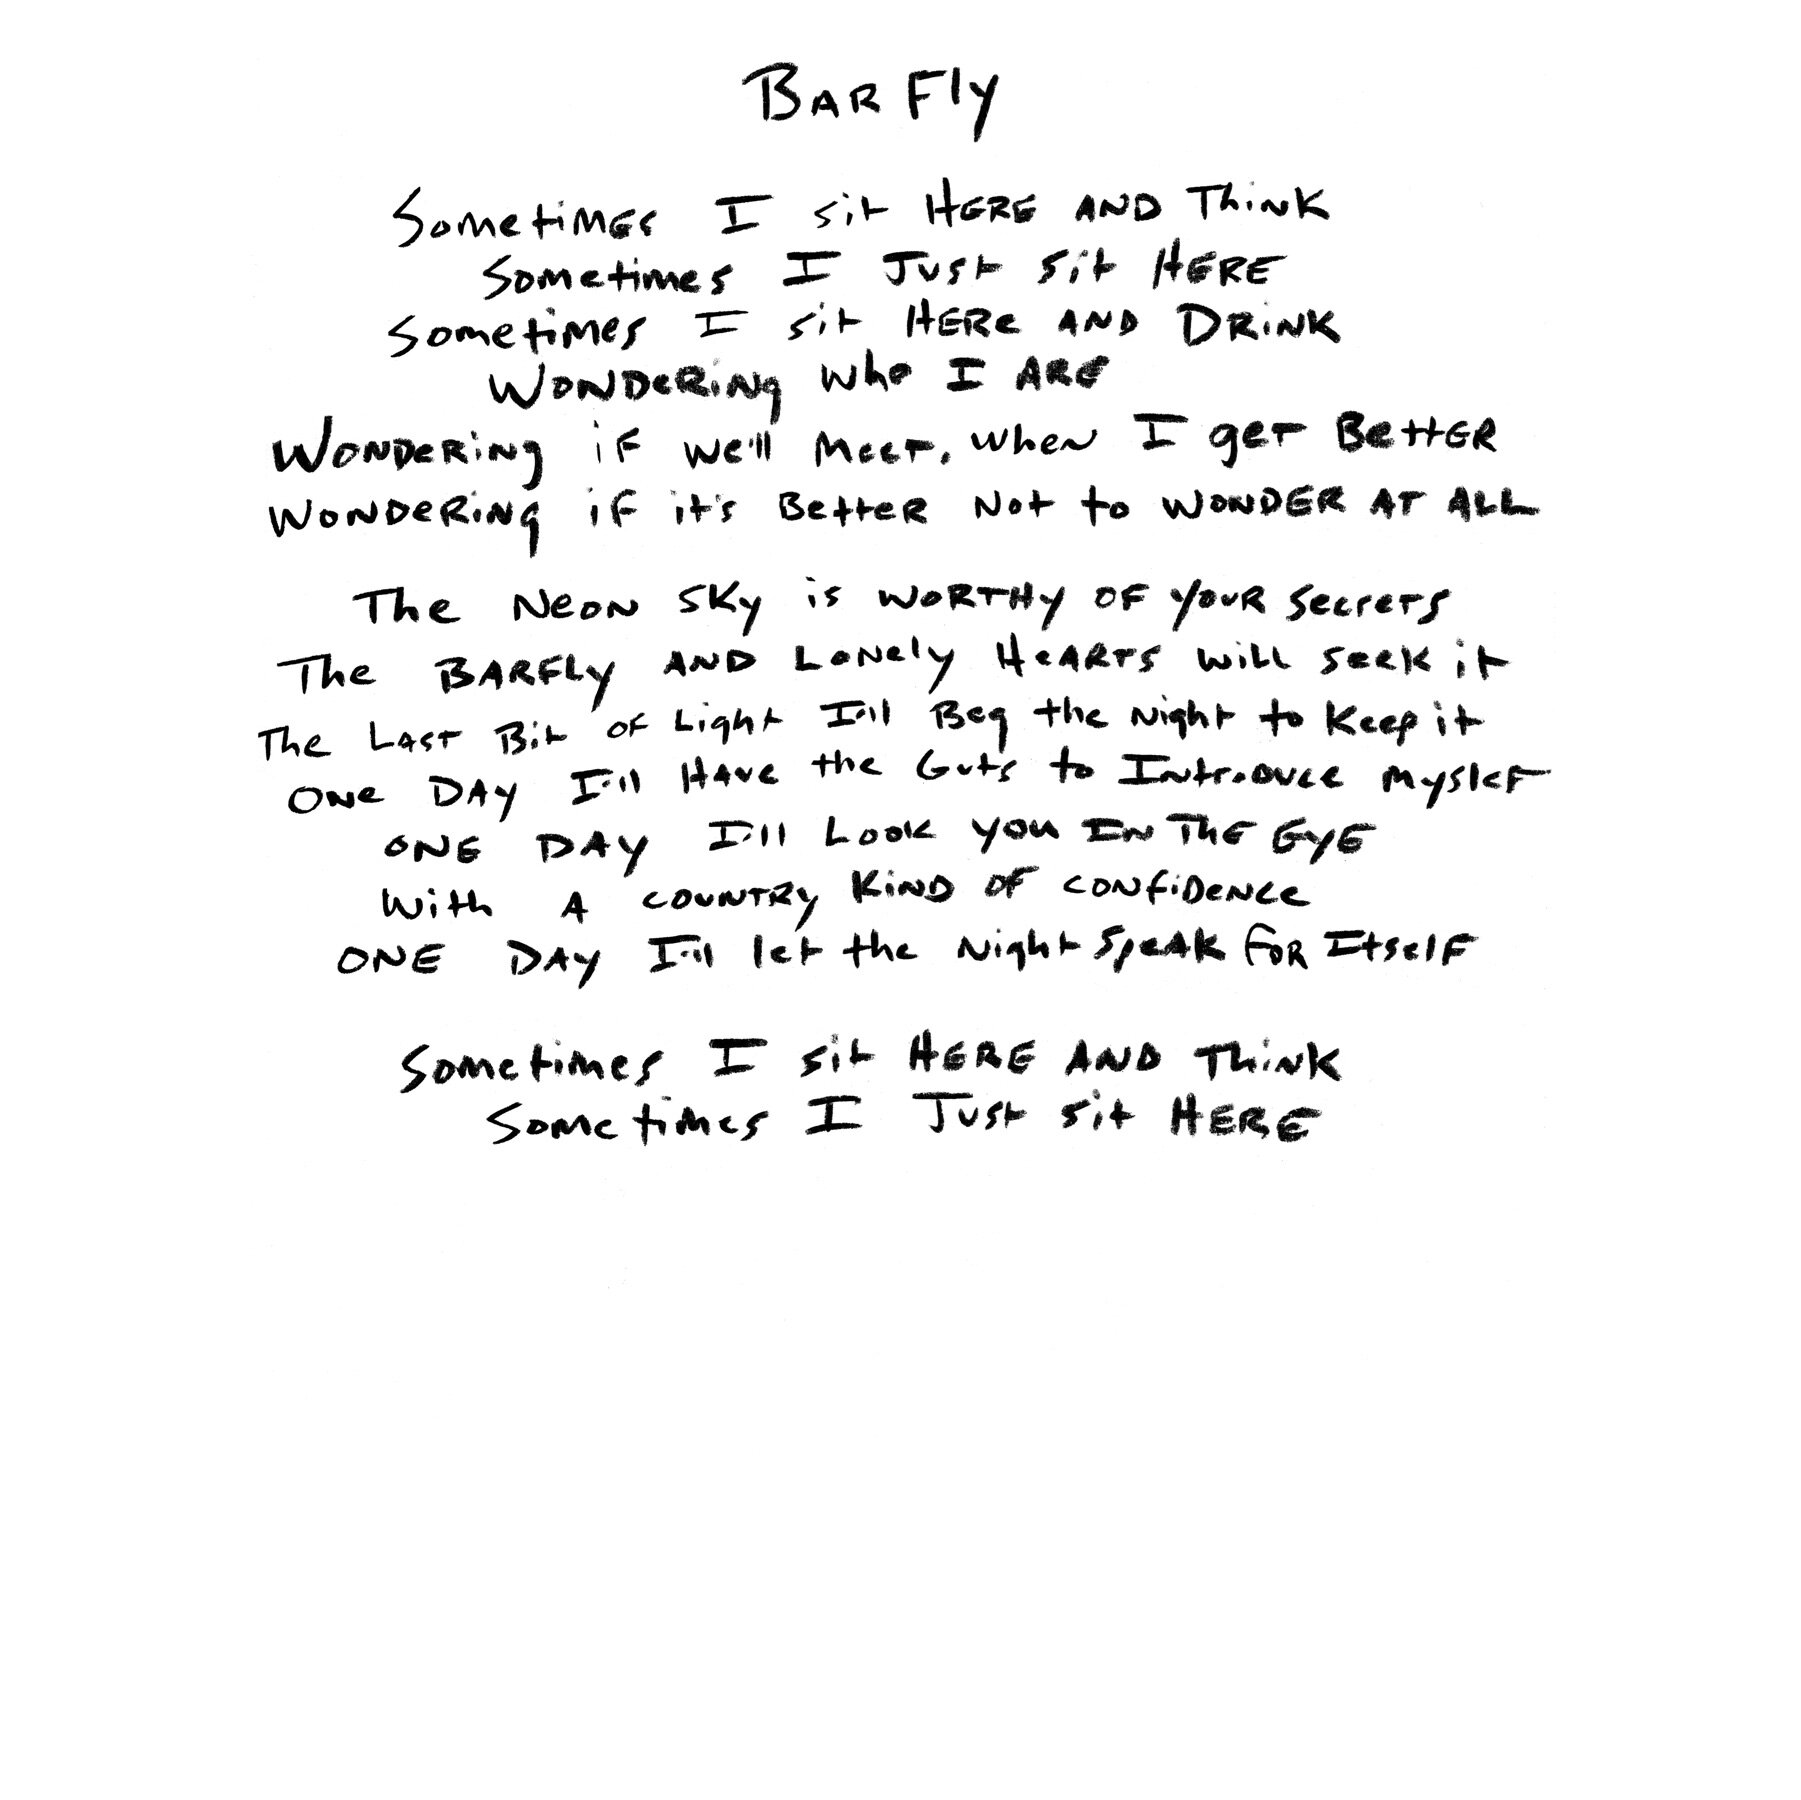 Bar Fly
Sometimes I sit Here and Think
Sometimes I Just sit Here
Sometimes I sit Here and Drink
Wondering who I are
Wondering if we'll meet, when I get Better
Wondering if it's Better not to wonder at all
The Neon Sky is worthy of your secrets
The Barfly and Lonely Hearts will seek it
The Last Bit of Light I'll Beg the Night to Keep it
One Day I'll Have the Guts to Introduce myslef
One Day I'll Look you In The Eye
With a country Kind of confidence
One Day I'll let the Night Speak for Itself
Sometimes I sit Here and Think
Sometimes I Just sit Here